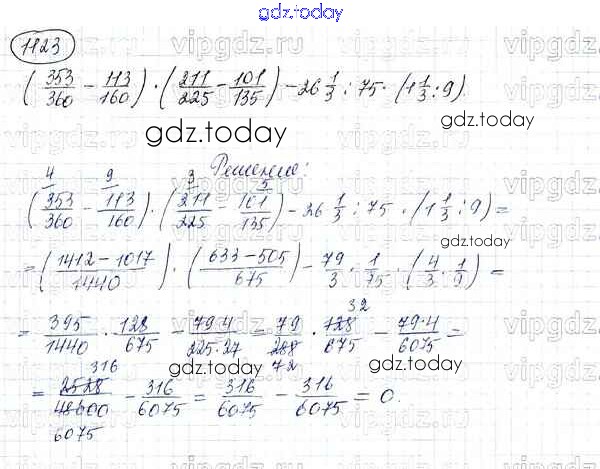 gdz.today
1123
vipgdz.ru vipgdz.ru vipgdz.ru
(353/360 − 113/160) · (211/225 − 101/135) − 26 1/3 : 75 · (1 1/3 : 9).
gdz.today
gdz.today
Решение:
4 9 3 5
(353/360 − 113/160) · (211/225 − 101/135) − 26 1/3 : 75 · (1 1/3 : 9) =
gdz.today
= (1412 − 1017 / 1440) · (633 − 505 / 675) − 79/3 · 1/75 · (4/3 · 1/9) =
32
= 395/1440 · 128/675 − 79·4/225·27 = 79/288 · 128/675 − 79·4/6075 =
72
gdz.today
gdz.today
316
= 2528/48600 − 316/6075 = 316/6075 − 316/6075 = 0.
6075
gdz.today